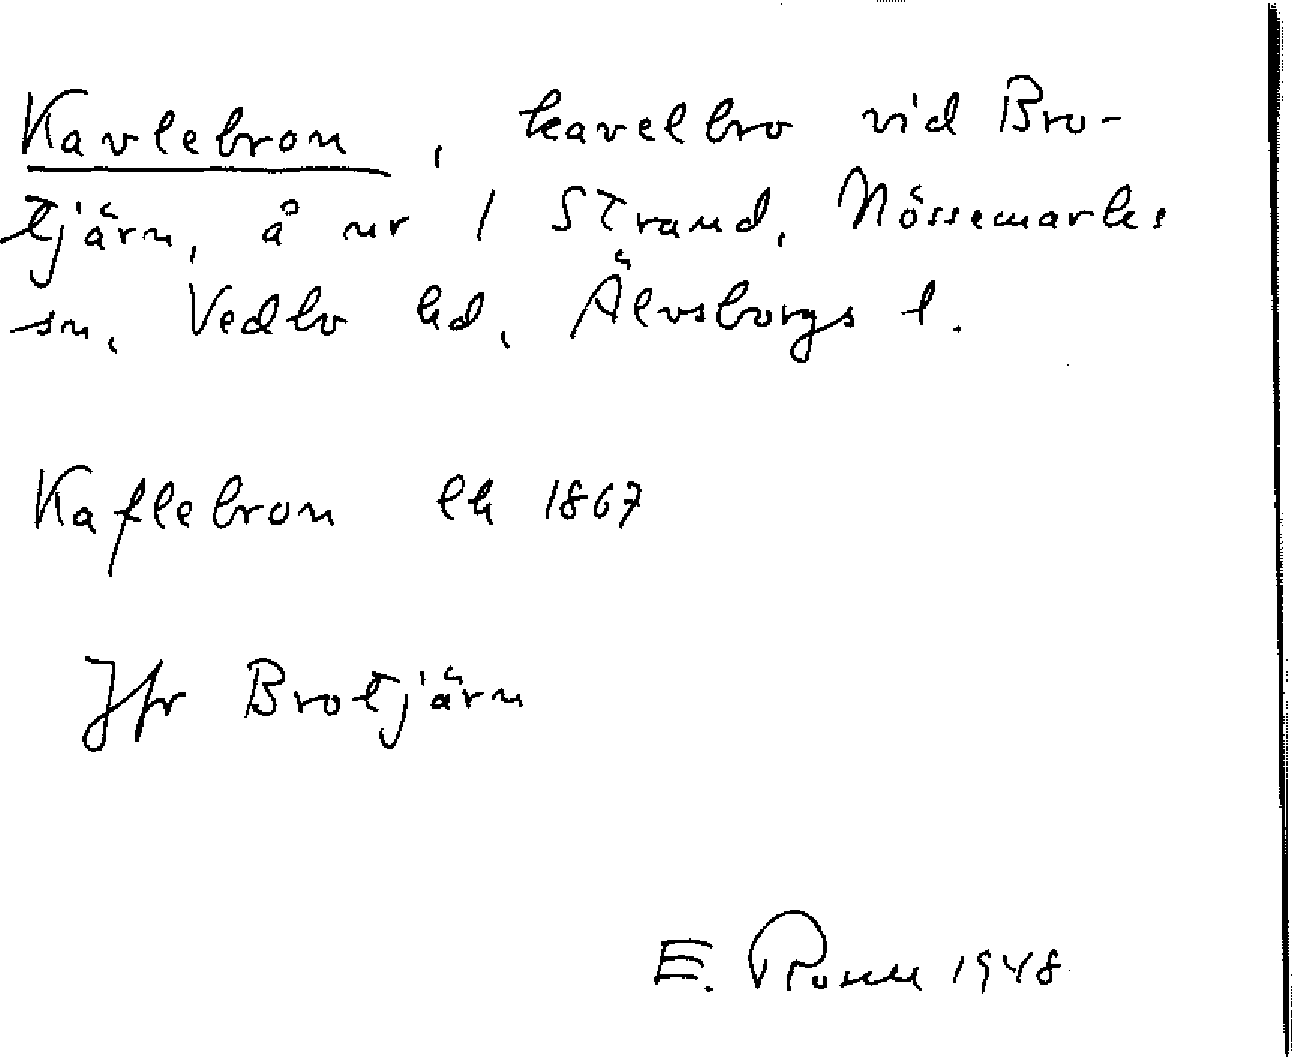 Kavlebron, kavelbro vid Bro-
tjärn, å nr 1 Strand, Nössemarks
sn, Vedbo hd, Älvsborgs l.
Kaflebron lh 1867
Jfr Brotjärn
E. Rosell 1948